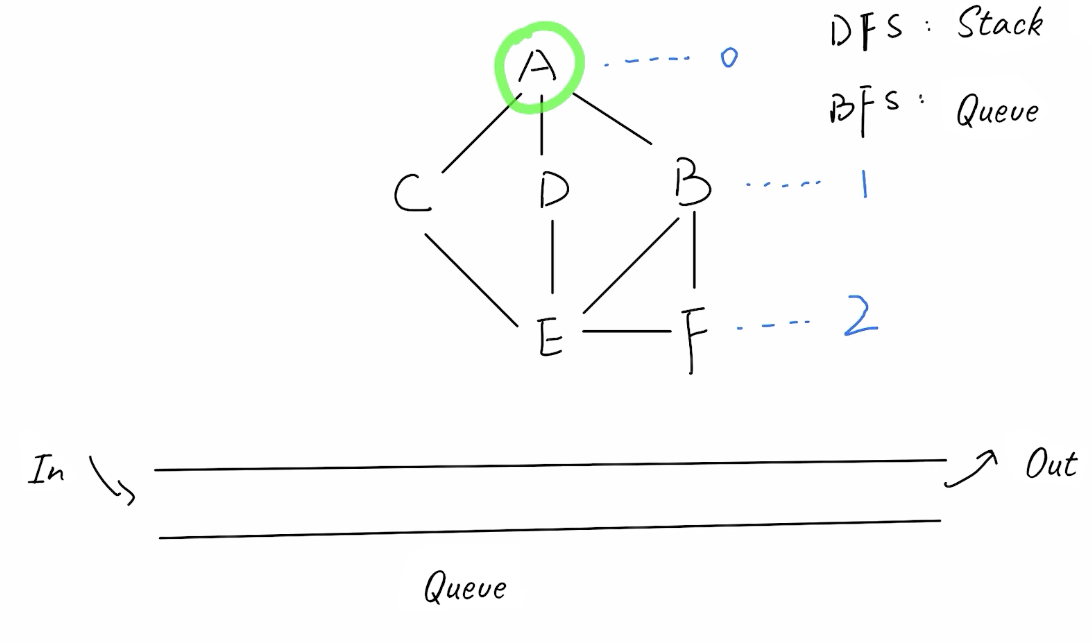 DFS: Stack
A 0
BFS: Queue
C D B 1
E F 2
In Out
Queue